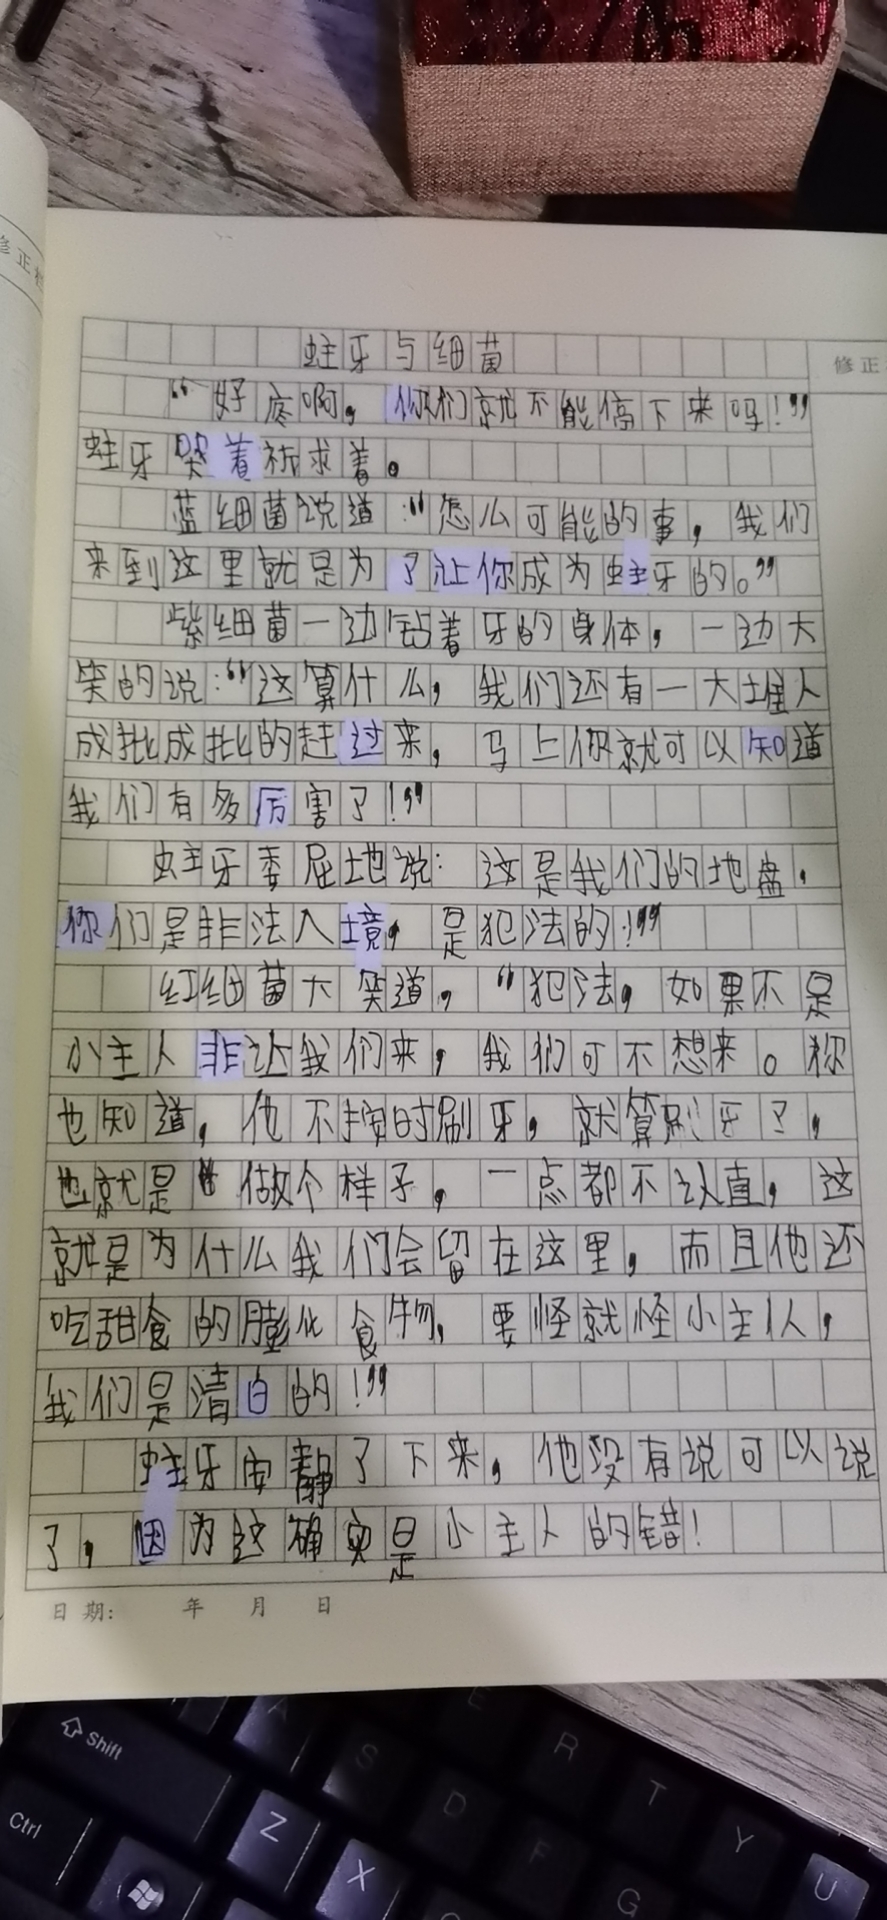 修正栏
修正
蛀牙与细菌
“好疼啊，你们就不能停下来吗！”
蛀牙哭着祈求着。
蓝细菌说道：“怎么可能的事，我们
来到这里就是为了让你成为蛀牙的。”
紫细菌一边钻着牙的身体，一边大
笑的说：“这算什么，我们还有一大堆人
成批成批的赶过来，马上你就可以知道
我们有多厉害了！”
蛀牙委屈地说：这是我们的地盘，
你们是非法入境，是犯法的！”
红细菌大笑道，“犯法，如果不是
小主人非让我们来，我们可不想来。你
也知道，他不按时刷牙，就算刷牙了，
也就是“做个样子，一点都不认真，这
就是为什么我们会留在这里，而且他还
吃甜食的膨化食物，要怪就怪小主人，
我们是清白的！”
蛀牙安静了下来，他没有说可以说
了，因为这确实是小主人的错！
日期： 年 月 日
Shift
A
E
R
S
D
T
Y
Ctrl
Z
X
F
G
U